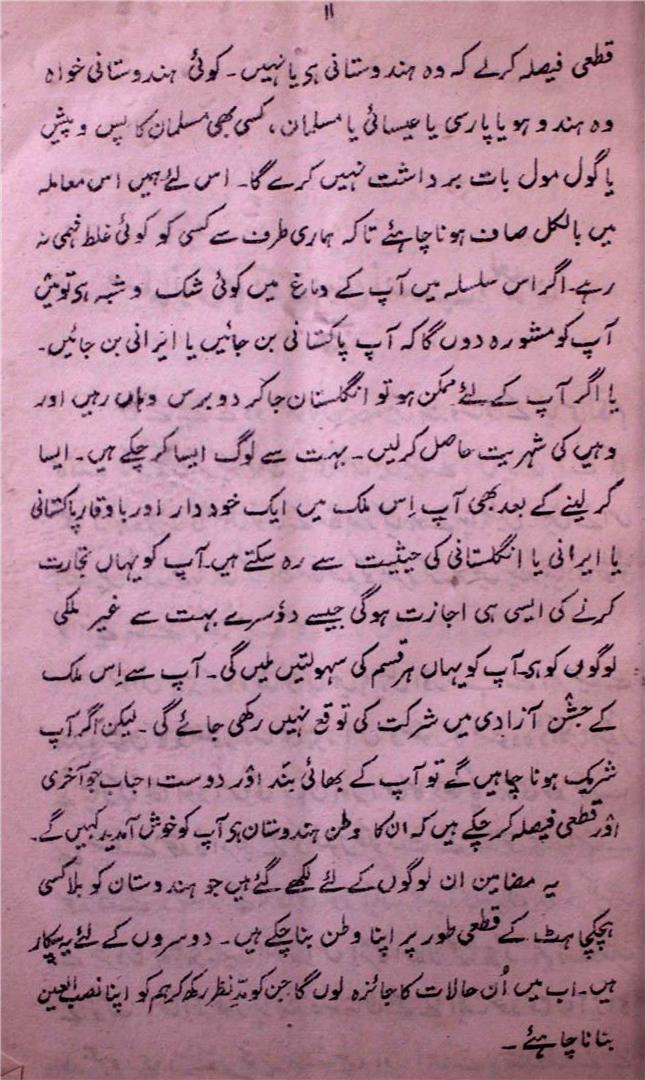 ۱۱
قطعی فیصلہ کرلے کہ وہ ہندوستانی ہی یا نہیں۔ کوئی ہندوستانی خواہ
وہ ہندو ہو یا پارسی یا عیسائی یا مسلمان، کسی بھی مسلمان کا پس و پیش
یا گول مول بات برداشت نہیں کرے گا۔ اس لئے ہمیں اس معاملہ
میں بالکل صاف ہونا چاہئے تاکہ ہماری طرف سے کسی کو کوئی غلط فہمی نہ
رہے۔ اگر اس سلسلہ میں آپ کے دماغ میں کوئی شک و شبہ ہی تو میں
آپ کو مشورہ دوں گا کہ آپ پاکستانی بن جائیں یا ایرانی بن جائیں۔
یا اگر آپ کے لئے ممکن ہو تو انگلستان جاکر دو برس وہاں رہیں اور
وہیں کی شہریت حاصل کرلیں۔ بہت سے لوگ ایسا کر چکے ہیں۔ ایسا
کر لینے کے بعد بھی آپ اِس ملک میں ایک خود دار اور باوقار پاکستانی
یا ایرانی یا انگلستانی کی حیثیت سے رہ سکتے ہیں۔ آپ کو یہاں تجارت
کرنے کی ایسی ہی اجازت ہوگی جیسے دوٗسرے بہت سے غیر ملکی
لوگوں کو ہی۔ آپ کو یہاں ہر قسم کی سہولتیں ملیں گی۔ آپ سے اِس ملک
کے جشن آزادی میں شرکت کی توقع نہیں رکھی جائے گی۔ لیکن اگر آپ
شریک ہونا چاہیں گے تو آپ کے بھائی بند اوٗر دوست احباب جو آخری
اوٗر قطعی فیصلہ کر چکے ہیں کہ ان کا وطن ہندوستان ہی آپ کو خوش آمدید کہیں گے۔
یہ مضامین ان لوگوں کے لئے لکھے گئے ہیں جو ہندوستان کو بلا کسی
ہچکچاہٹ کے قطعی طور پر اپنا وطن بنا چکے ہیں۔ دوسروں کے لئے یہ بیکار
ہیں۔ اب میں اُن حالات کا جائزہ لوں گا جن کو مدِّ نظر رکھ کر ہم کو اپنا نصب العین
بنانا چاہئے۔